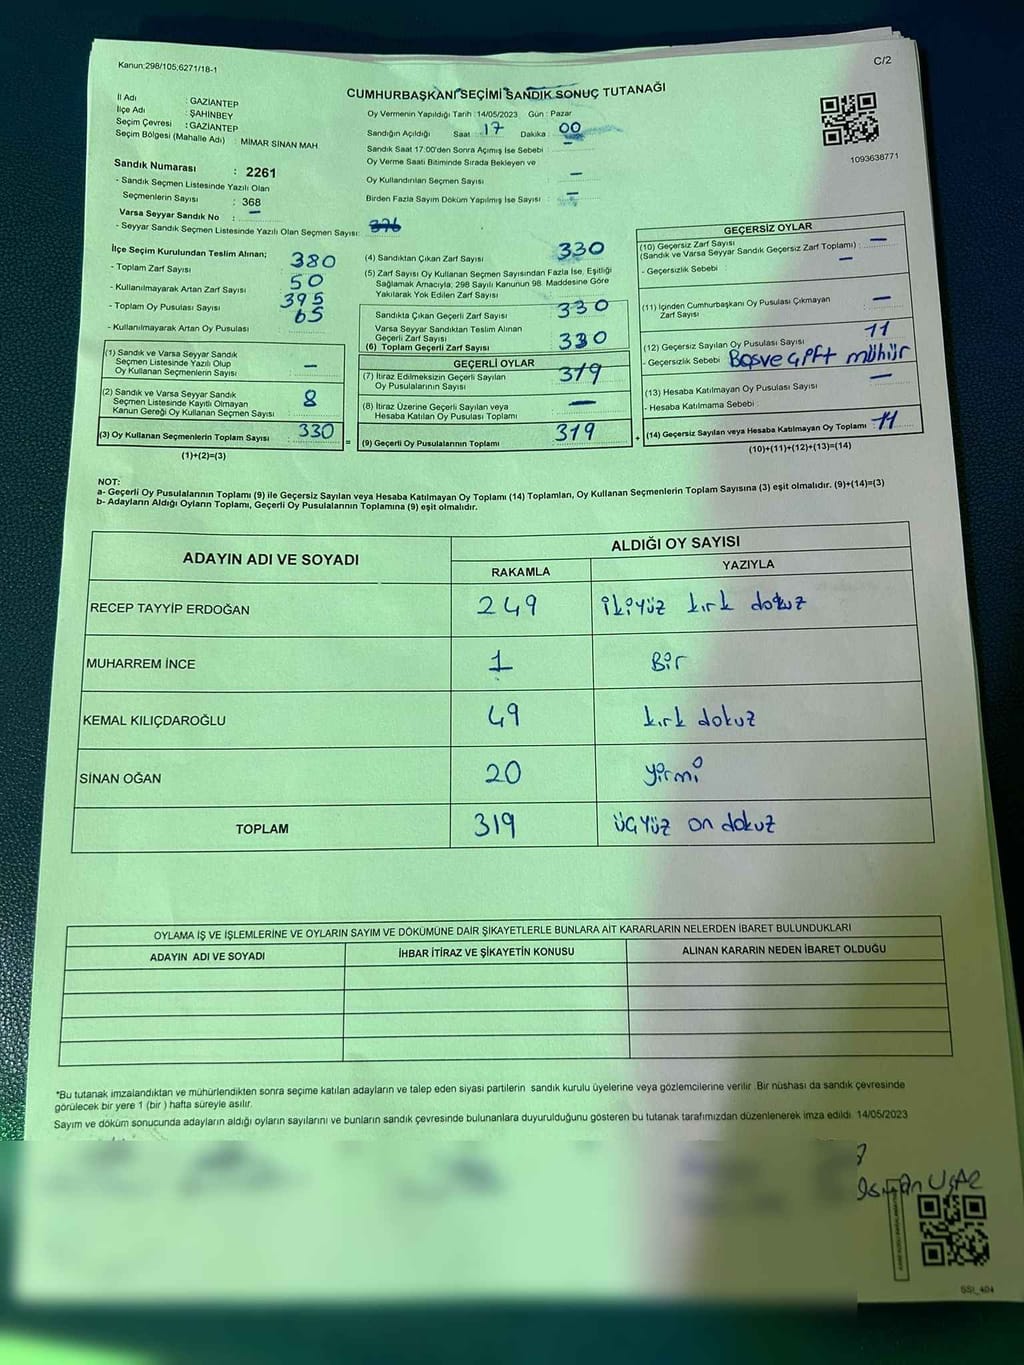 Kanun:298/105,6271/18-1
C/2
CUMHURBAŞKANI SEÇİMİ SANDIK SONUÇ TUTANAĞI
İl Adı : GAZİANTEP
İlçe Adı : ŞAHİNBEY
Seçim Çevresi : GAZİANTEP
Seçim Bölgesi (Mahalle Adı) : MİMAR SİNAN MAH
Sandık Numarası : 2261
- Sandık Seçmen Listesinde Yazılı Olan
Seçmenlerin Sayısı : 368
Varsa Seyyar Sandık No : –
- Seyyar Sandık Seçmen Listesinde Yazılı Olan Seçmen Sayısı:
Oy Vermenin Yapıldığı Tarih : 14/05/2023 Gün : Pazar
Sandığın Açıldığı Saat : 17 Dakika : 00
Sandık Saat 17:00'den Sonra Açımış İse Sebebi : –
Oy Verme Saati Bitiminde Sırada Bekleyen ve
Oy Kullandırılan Seçmen Sayısı –
Birden Fazla Sayım Döküm Yapılmış İse Sayısı : –
1093638771
İlçe Seçim Kurulundan Teslim Alınan;
- Toplam Zarf Sayısı 380
- Kullanılmayarak Artan Zarf Sayısı 50
- Toplam Oy Pusulası Sayısı 395
- Kullanılmayarak Artan Oy Pusulası 65
(1) Sandık ve Varsa Seyyar Sandık
Seçmen Listesinde Yazılı Olup
Oy Kullanan Seçmenlerin Sayısı –
(2) Sandık ve Varsa Seyyar Sandık
Seçmen Listesinde Kayıtlı Olmayan
Kanun Gereği Oy Kullanan Seçmen Sayısı 8
(3) Oy Kullanan Seçmenlerin Toplam Sayısı 330 =
(1)+(2)=(3)
(4) Sandıktan Çıkan Zarf Sayısı 330
(5) Zarf Sayısı Oy Kullanan Seçmen Sayısından Fazla İse, Eşitliği
Sağlamak Amacıyla, 298 Sayılı Kanunun 98. Maddesine Göre
Yakılarak Yok Edilen Zarf Sayısı
Sandıkta Çıkan Geçerli Zarf Sayısı 330
Varsa Seyyar Sandıktan Teslim Alınan
Geçerli Zarf Sayısı
(6) Toplam Geçerli Zarf Sayısı 330
GEÇERLİ OYLAR
(7) İtiraz Edilmeksizin Geçerli Sayılan
Oy Pusulalarının Sayısı 319
(8) İtiraz Üzerine Geçerli Sayılan veya
Hesaba Katılan Oy Pusulası Toplamı –
(9) Geçerli Oy Pusulalarının Toplamı 319 +
GEÇERSİZ OYLAR
(10) Geçersiz Zarf Sayısı –
(Sandık ve Varsa Seyyar Sandık Geçersiz Zarf Toplamı) :
- Geçersizlik Sebebi : –
(11) İçinden Cumhurbaşkanı Oy Pusulası Çıkmayan
Zarf Sayısı –
(12) Geçersiz Sayılan Oy Pusulası Sayısı 11
- Geçersizlik Sebebi : Boş ve Çift mühür
(13) Hesaba Katılmayan Oy Pusulası Sayısı –
- Hesaba Katılmama Sebebi :
(14) Geçersiz Sayılan veya Hesaba Katılmayan Oy Toplamı 11
(10)+(11)+(12)+(13)=(14)
NOT:
a- Geçerli Oy Pusulalarının Toplamı (9) ile Geçersiz Sayılan veya Hesaba Katılmayan Oy Toplamı (14) Toplamları, Oy Kullanan Seçmenlerin Toplam Sayısına (3) eşit olmalıdır. (9)+(14)=(3)
b- Adayların Aldığı Oyların Toplamı, Geçerli Oy Pusulalarının Toplamına (9) eşit olmalıdır.
ADAYIN ADI VE SOYADI ALDIĞI OY SAYISI
RAKAMLA YAZIYLA
RECEP TAYYİP ERDOĞAN 249 ikiyüz kırk dokuz
MUHARREM İNCE 1 Bir
KEMAL KILIÇDAROĞLU 49 kırk dokuz
SİNAN OĞAN 20 yirmi
TOPLAM 319 üçyüz on dokuz
OYLAMA İŞ VE İŞLEMLERİNE VE OYLARIN SAYIM VE DÖKÜMÜNE DAİR ŞİKAYETLERLE BUNLARA AİT KARARLARIN NELERDEN İBARET BULUNDUKLARI
ADAYIN ADI VE SOYADI İHBAR İTİRAZ VE ŞİKAYETİN KONUSU ALINAN KARARIN NEDEN İBARET OLDUĞU
*Bu tutanak imzalandıktan ve mühürlendikten sonra seçime katılan adayların ve talep eden siyasi partilerin sandık kurulu üyelerine veya gözlemcilerine verilir. Bir nüshası da sandık çevresinde
görülecek bir yere 1 (bir) hafta süreyle asılır.
Sayım ve döküm sonucunda adayların aldığı oyların sayılarını ve bunların sandık çevresinde bulunanlara duyurulduğunu gösteren bu tutanak tarafımızdan düzenlenerek imza edildi. 14/05/2023
SSİ_404